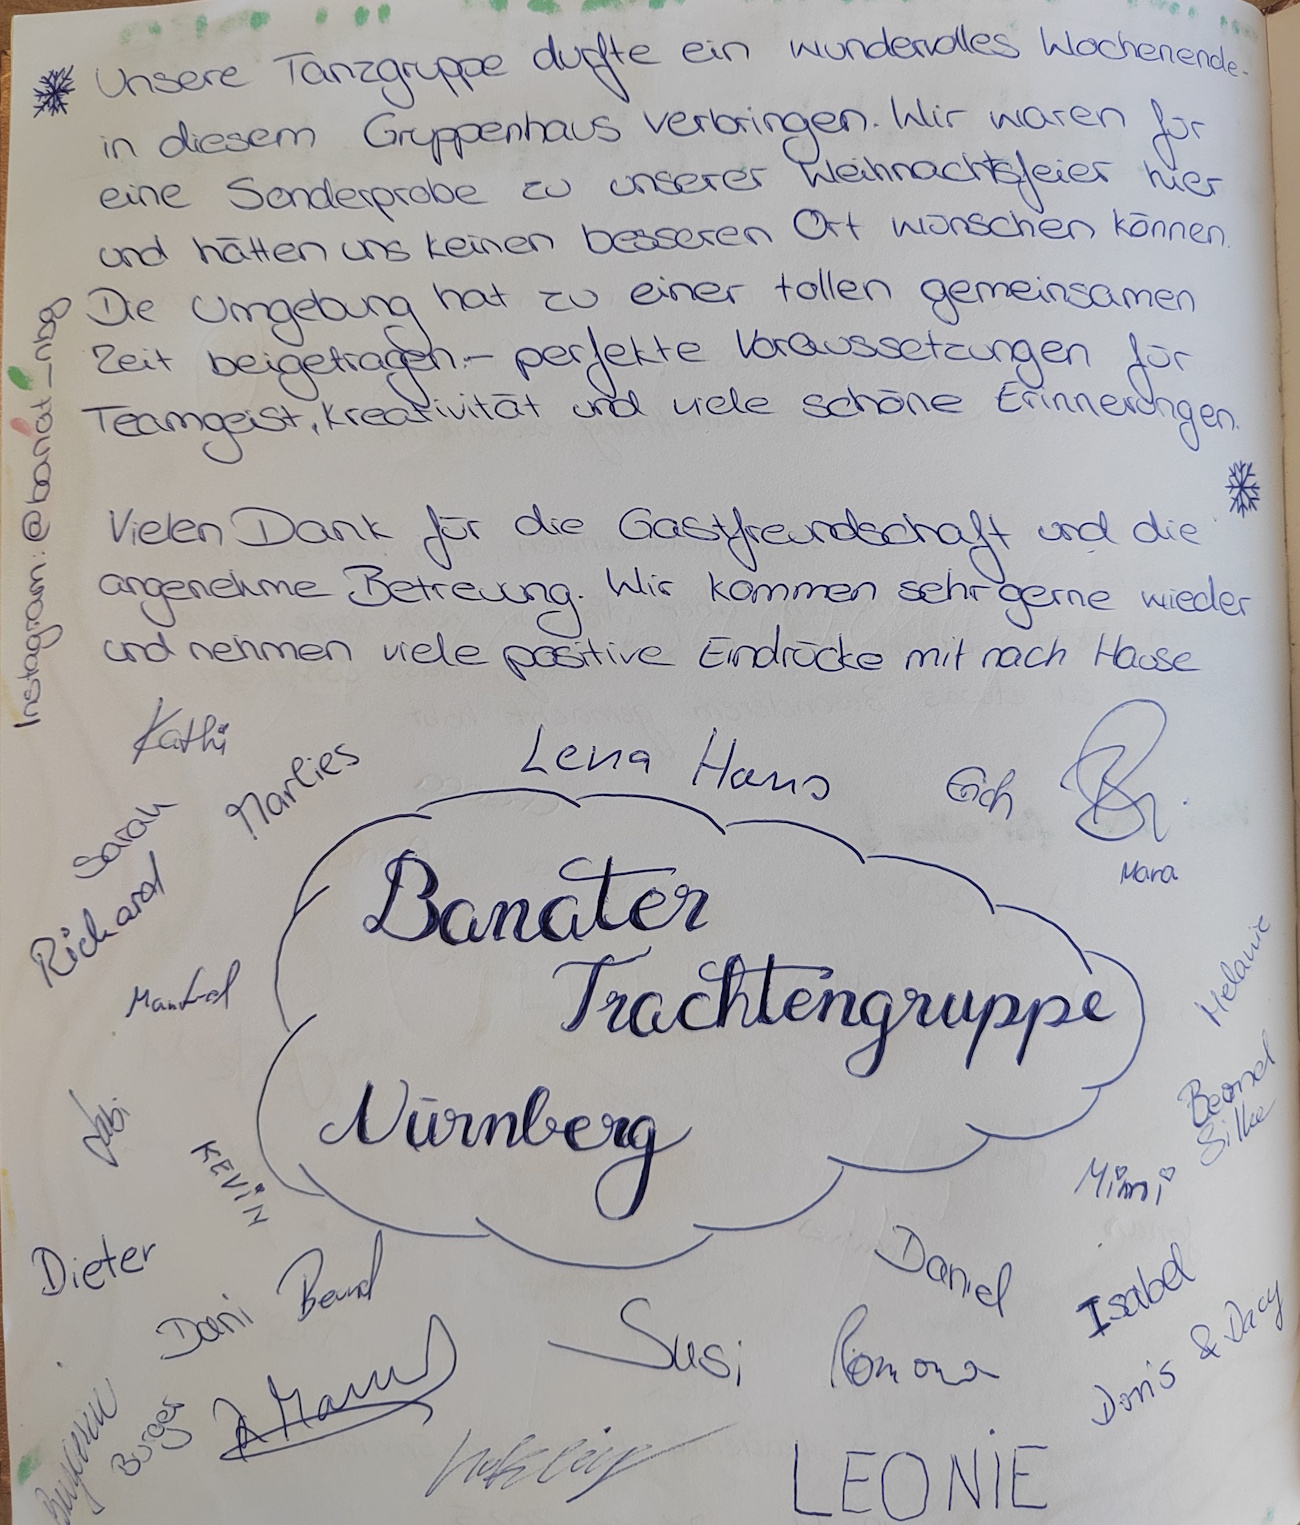 Unsere Tanzgruppe durfte ein wundervolles Wochenende
in diesem Gruppenhaus verbringen. Wir waren für
eine Sonderprobe zu unserer Weihnachtsfeier hier
und hätten uns keinen besseren Ort wünschen können.
Die Umgebung hat zu einer tollen gemeinsamen
Zeit beigetragen - perfekte Voraussetzungen für
Teamgeist, Kreativität und viele schöne Erinnerungen.
Vielen Dank für die Gastfreundschaft und die
angenehme Betreuung. Wir kommen sehr gerne wieder
und nehmen viele positive Eindrücke mit nach Hause
Instagram: @banat_nbg
Kathi
Marlies
Lena Hans
Mara
Sarah
Richard
Banater
Trachtengruppe
Nürnberg
Melanie
Silke
Mimi
KEVIN
Dieter
Dani
Daniel
Isabel
Susi
Ramona
Doris & Dacy
Burger
LEONIE